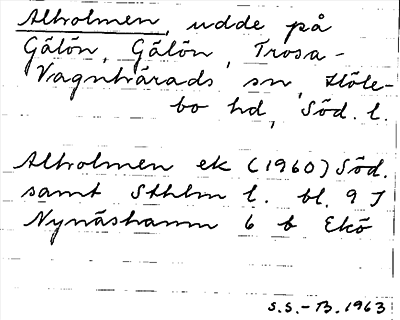 Alholmen, udde på
Gälön, Gälön, Trosa-
Vagnhärads sn, Höle-
bo hd, Söd. l.
Alholmen ek (1960) Söd.
samt Sthlm l. bl. 9 I
Nynäshamn 6 b Ekö
S.S.-B. 1963